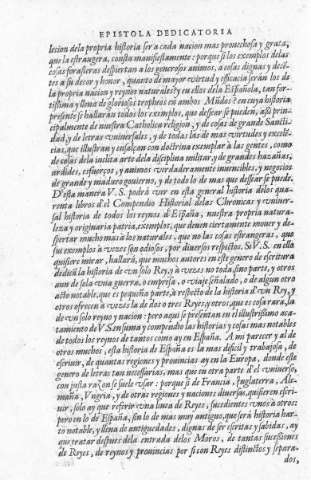 EPISTOLA DEDICATORIA
lecion dela propria historia ser a cada nacion mas prouechosa y grata,
que la estrangera, consta manifiestamente: porque si los exemplos delas
cosas forasteras despiertan a los generosos animos, a cosas dignas y decẽ-
tes a su decor y honor, quanto de mayor virtud y eficacia serán los de
la propria nacion y reynos naturales? y en ellos dela Española, tan for-
tissima y llena de gloriosos tropheos en ambos Mũdos? en cuya historia
presente se hallarán todos los exemplos, que dessear se pueden, assi prin-
cipalmente de nuestra Catholica religion, y de cosas de grande Sancti-
dad, y de letras vniuersales, y de todas las de mas virtudes y excelẽ-
cias, que illustran y ensalçan con doctrina exemplar a las gentes, como
de cosas dela inclita arte dela disciplina militar, y de grandes hazañas,
ardides, esfuerços, y animos verdaderamente inuencibles, y negocios
de grande y maduro gouierno, y de todo lo de mas que dessear se puede.
D'esta manera V. S. podrá ver en esta general historia delos qua-
renta libros d'el Compendio Historial delas Chronicas y vniuer-
sal historia de todos los reynos d'España, nuestra propria natura-
y originaria patria, exemplos, que deuen ciertamente mouer y des-
pertar mucho mas à los naturales, que no las cosas estrangeras, que
sus exemplos à vezes son odiosos, por diuersos respectos. Si V. S. en ella
quisiere mirar, hallará, que muchos autores en este genero de escritura
dedicã la historia de vn solo Rey, y à vezes no toda, sino parte, y otros
aun de sola vna guerra, o empresa, o viaje señalado, o de algun otro
acto notable, que es pequeña parte, à respecto de la historia d'vn Rey, y
otros ofrecen à vezes la de dos o tres Reyes, y otros, que es cosa rara, la
de vn solo reyno y nacion: pero aqui se presentan en el illustrissimo aca-
tamiento de V. S. en suma y compendio las historias y cosas mas notables
de todos los reynos de tantos como ay en España. A mi parecer y al de
otros muchos, esta historia de España es la mas dificil y trabajosa, de
escriuir, de quantas regiones y prouincias ay en la Europa, donde este
genero de letras tan necessarias, mas que en otra parte d'el vniuerso,
con justa razon se suele vsar: porque si de Francia, Inglaterra, Ale-
maña, Vngria, y de otras regiones y naciones diuersas, quisieren escri-
uir, solo ay que referir vna linea de Reyes, succedientes vnos à otros:
pero en lo de España, sin lo de mas muy antiguo, que será historia har-
to notable, y llena de antiguedades, dignas de ser escritas y sabidas, ay
que tratar despues dela entrada delos Moros, de tantas successiones
de Reyes, de reynos y prouincias por si con Reyes distinctos y separa-
dos,